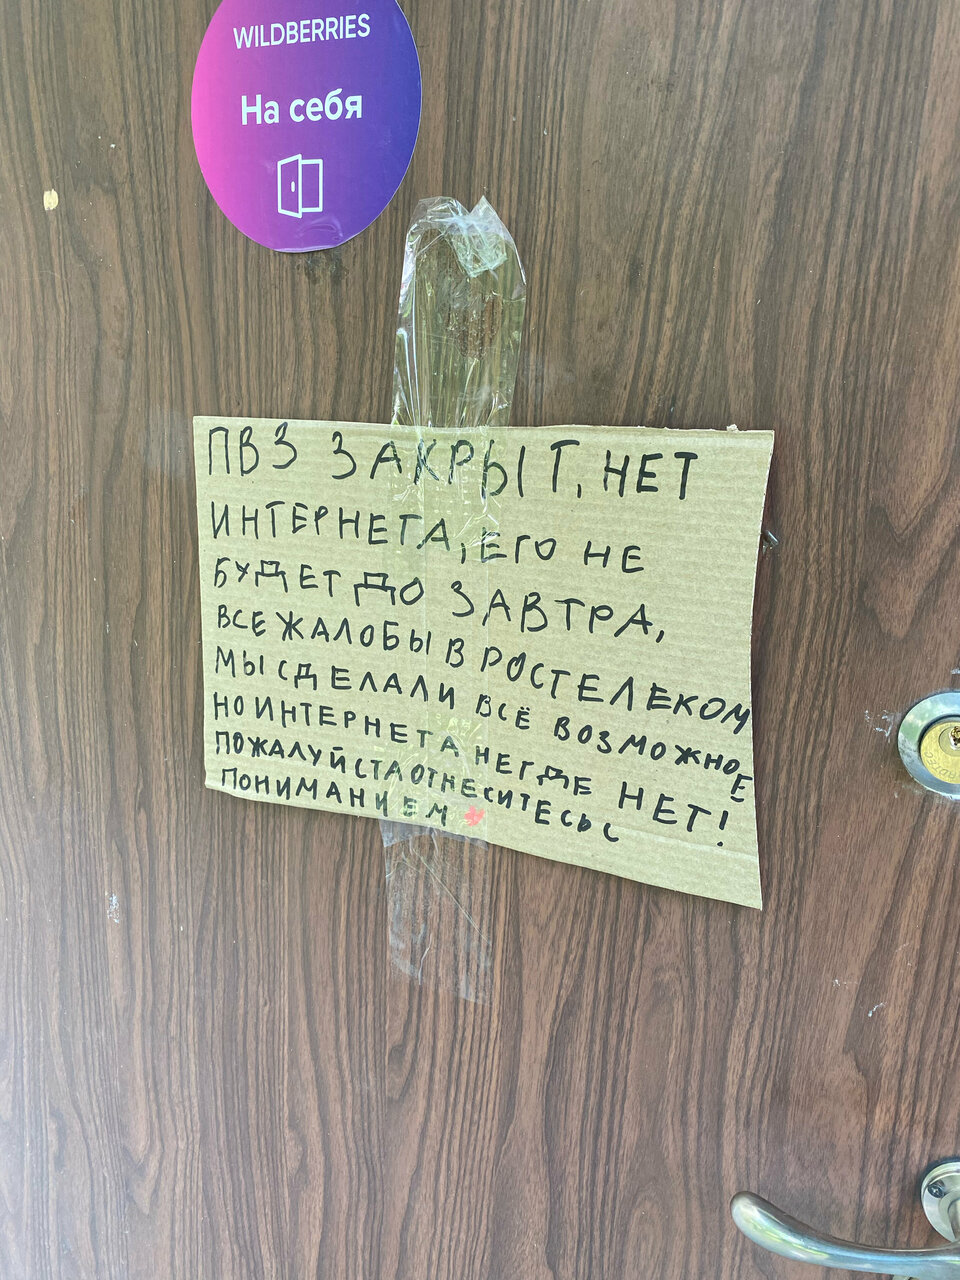 WILDBERRIES
На себя
ПВЗ ЗАКРЫТ, НЕТ
ИНТЕРНЕТА, ЕГО НЕ
БУДЕТ ДО ЗАВТРА,
ВСЕ ЖАЛОБЫ В РОСТЕЛЕКОМ
МЫ СДЕЛАЛИ ВСЁ ВОЗМОЖНОЕ
НО ИНТЕРНЕТА НЕГДЕ НЕТ!
ПОЖАЛУЙСТА ОТНЕСИТЕСЬ С
ПОНИМАНИЕМ